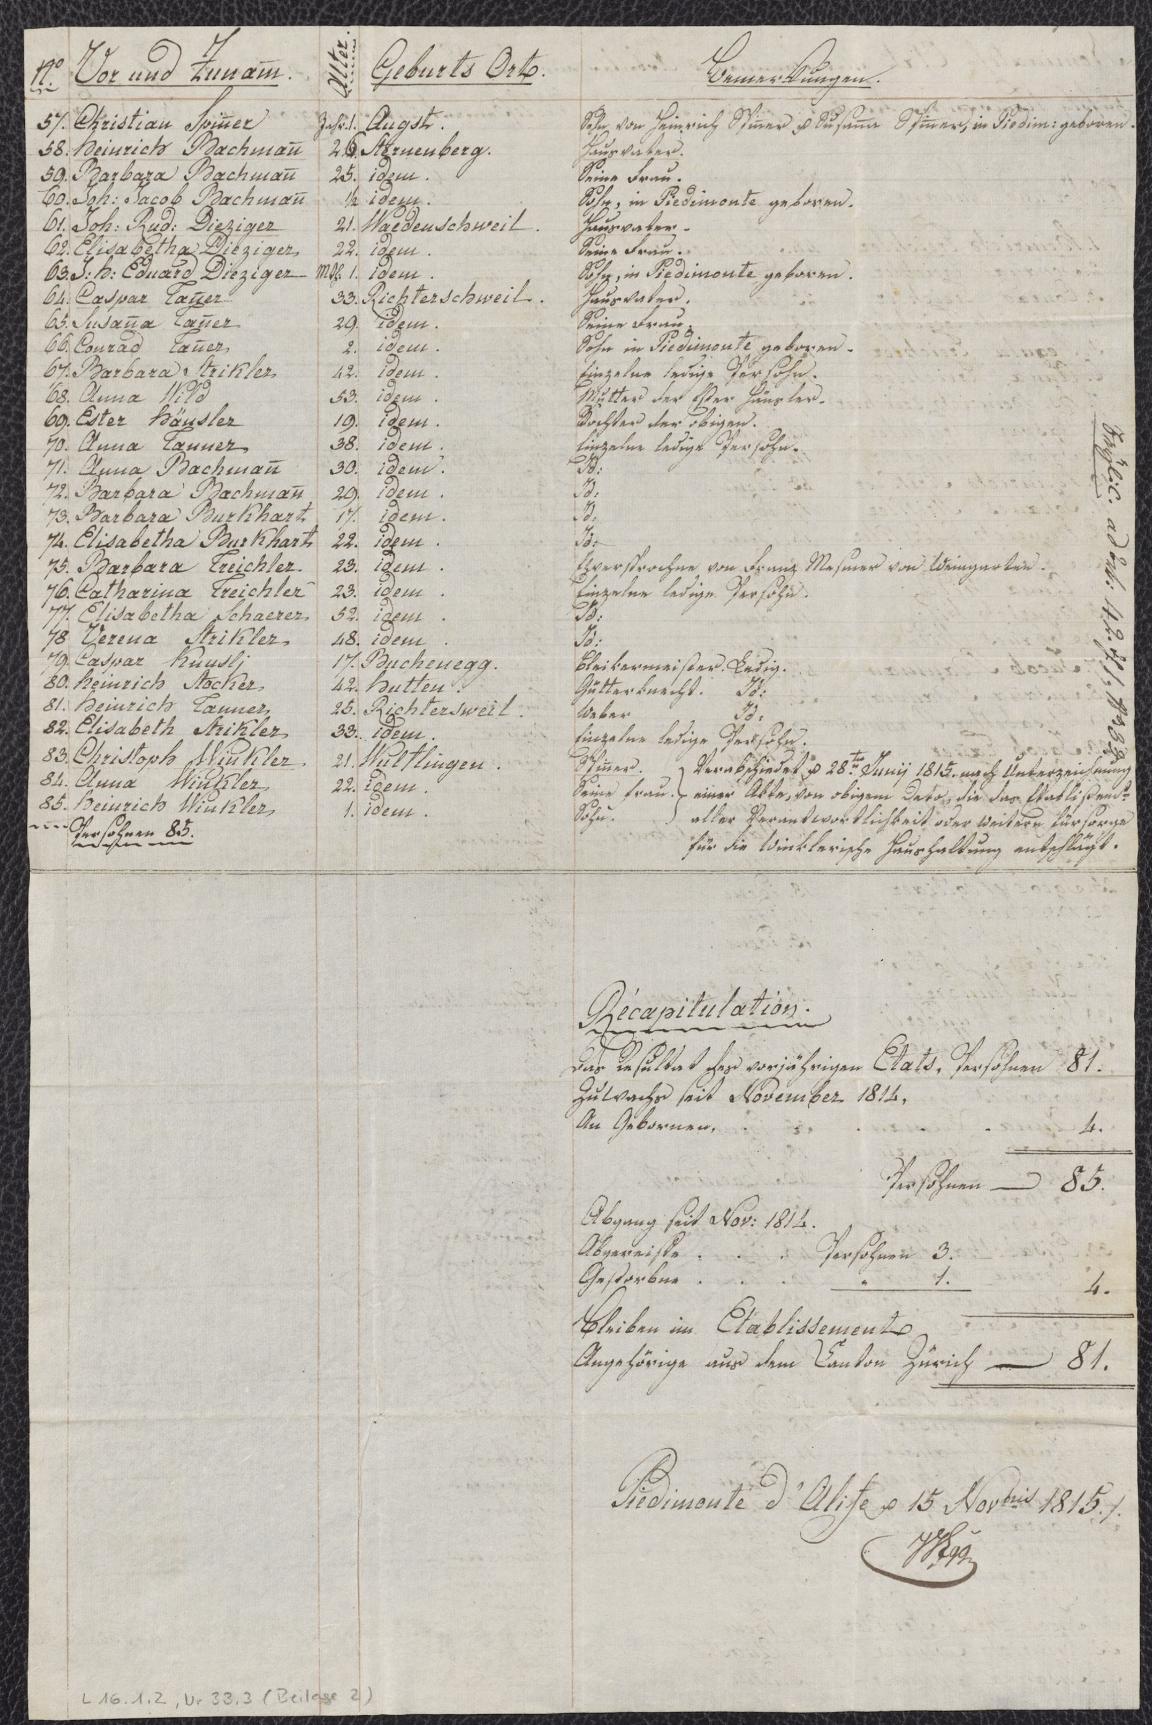 No. Vor und Zunam̅. Alter. Geburts Ort. Bemerkungen.
57. Christian Spin̅er Jahr. 1. Augst. Sohn von Heinrich Spin̅er & Susan̅a Spin̅er, in Piedim: geboren.
58. Heinrich Bachman̅ Sternenberg. Hausvater.
59. Barbara Bachman̅ 25. idem. Seine Frau.
60. Joh: Jacob Bachman̅ ½ idem. Sohn, in Piedimonte geboren.
61. Joh: Rud: Dieziger 21. Waedenschweil. Hausvater.
62. Elisabetha Dieziger 22. idem. Seine Frau.
63. J: h: Eduard Dieziger 1. idem. Sohn, in Piedimonte geboren.
64. Caspar Tan̅er 33. Richterschweil. Hausvater.
65. Susan̅a Tan̅er 29. idem. Seine Frau.
66. Conrad Tan̅er 2. idem. Sohn in Piedimonte geboren.
67. Barbara Strikler 42. idem. Einzelne ledige Persohn.
68. Anna Wild 53. idem. Mutter der Ester Häusler.
69. Ester Häusler 19. idem. Tochter der obigen.
70. Anna Tanner 38. idem. Einzelne ledige Persohn.
71. Anna Bachman̅ 30. idem. Id:
72. Barbara Bachman̅ 29. idem. Id:
73. Barbara Burkhart 17. idem. Id:
74. Elisabetha Burkhart 22. idem. Id:
75. Barbara Treichler 23. idem. Eheversprochne von Franz Mesmer von Weingarten.
76. Catharina Treichler 23. idem. Einzelne ledige Persohn.
77. Elisabetha Schaerer 52. idem. Id:
78. Verena Strikler 48. idem. Id:
79. Caspar Kunslj 17. Buchenegg. Bleikermeister. Ledig.
80. Heinrich Stocker 42. Hutten. Gutterknecht. Id:
81. Heinrich Tanner 25. Richtersweil. Weber Id:
82. Elisabeth Strikler 33. idem. Einzelne ledige Persohn.
83. Christoph Winkler 21. Wülflingen. Spin̅er. Verabschiedet d 28te Junij 1815. nach Unterzeichnung
84. Anna Winkler 22. idem. Seine Frau. einer Akte, von obigem Dato, die das Etablißemt
85. Heinrich Winkler 1. idem. Sohn. aller Verantwortlichkeit oder weitern Fürsorge
Persohnen 85. für die Winklerische Haushaltung entschlägt.
Récapitulation.
Das Resultat des vorjährigen Etats, Persohnen 81.
Zuwachs seit November 1814,
An Gebornen. 4.
Persohnen — 85.
Abgang seit Nov: 1814.
Abgereißte Persohnen 3.
Gestorbne " 1. 4.
Bleiben im Etablissement
Angehörige aus dem Canton Zürich — 81.
Piedimonte d'Alife d 15 Novbris 1815.
L 16.1.2, Nr 33.3 (Beilage 2)